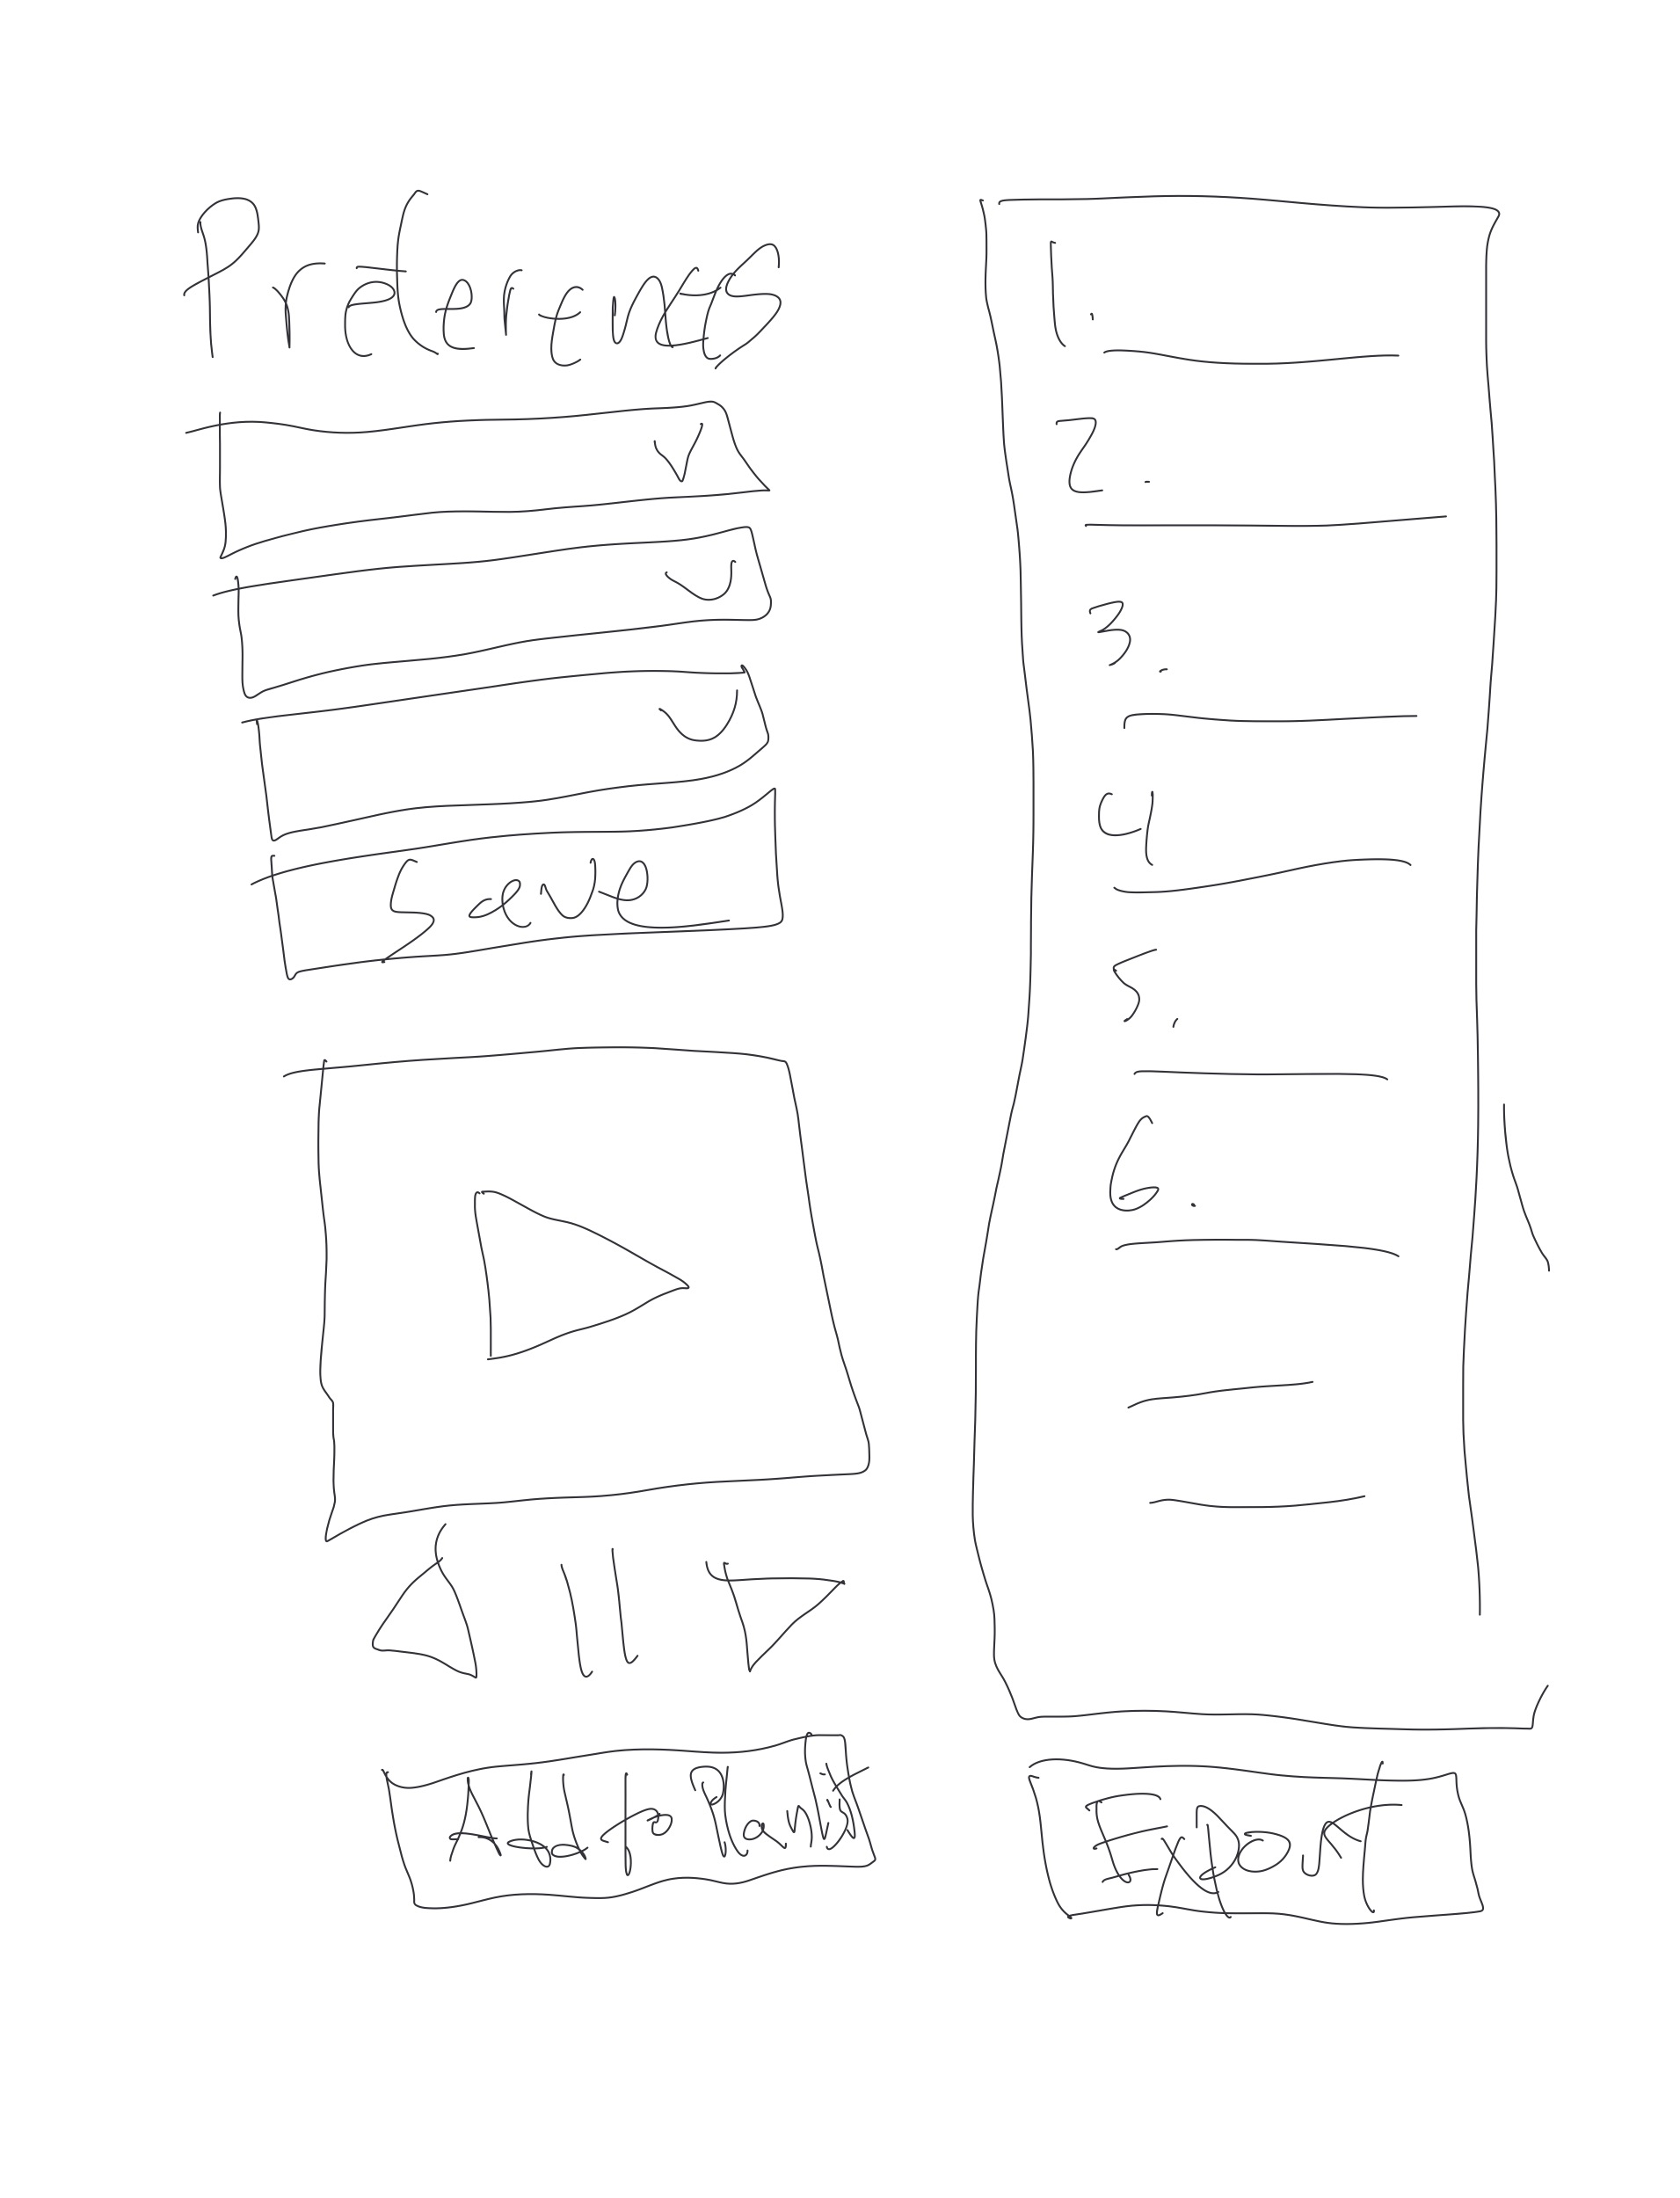 Preferences
Save
Add to Playlist
1.
2.
3.
4
5.
6.
Export